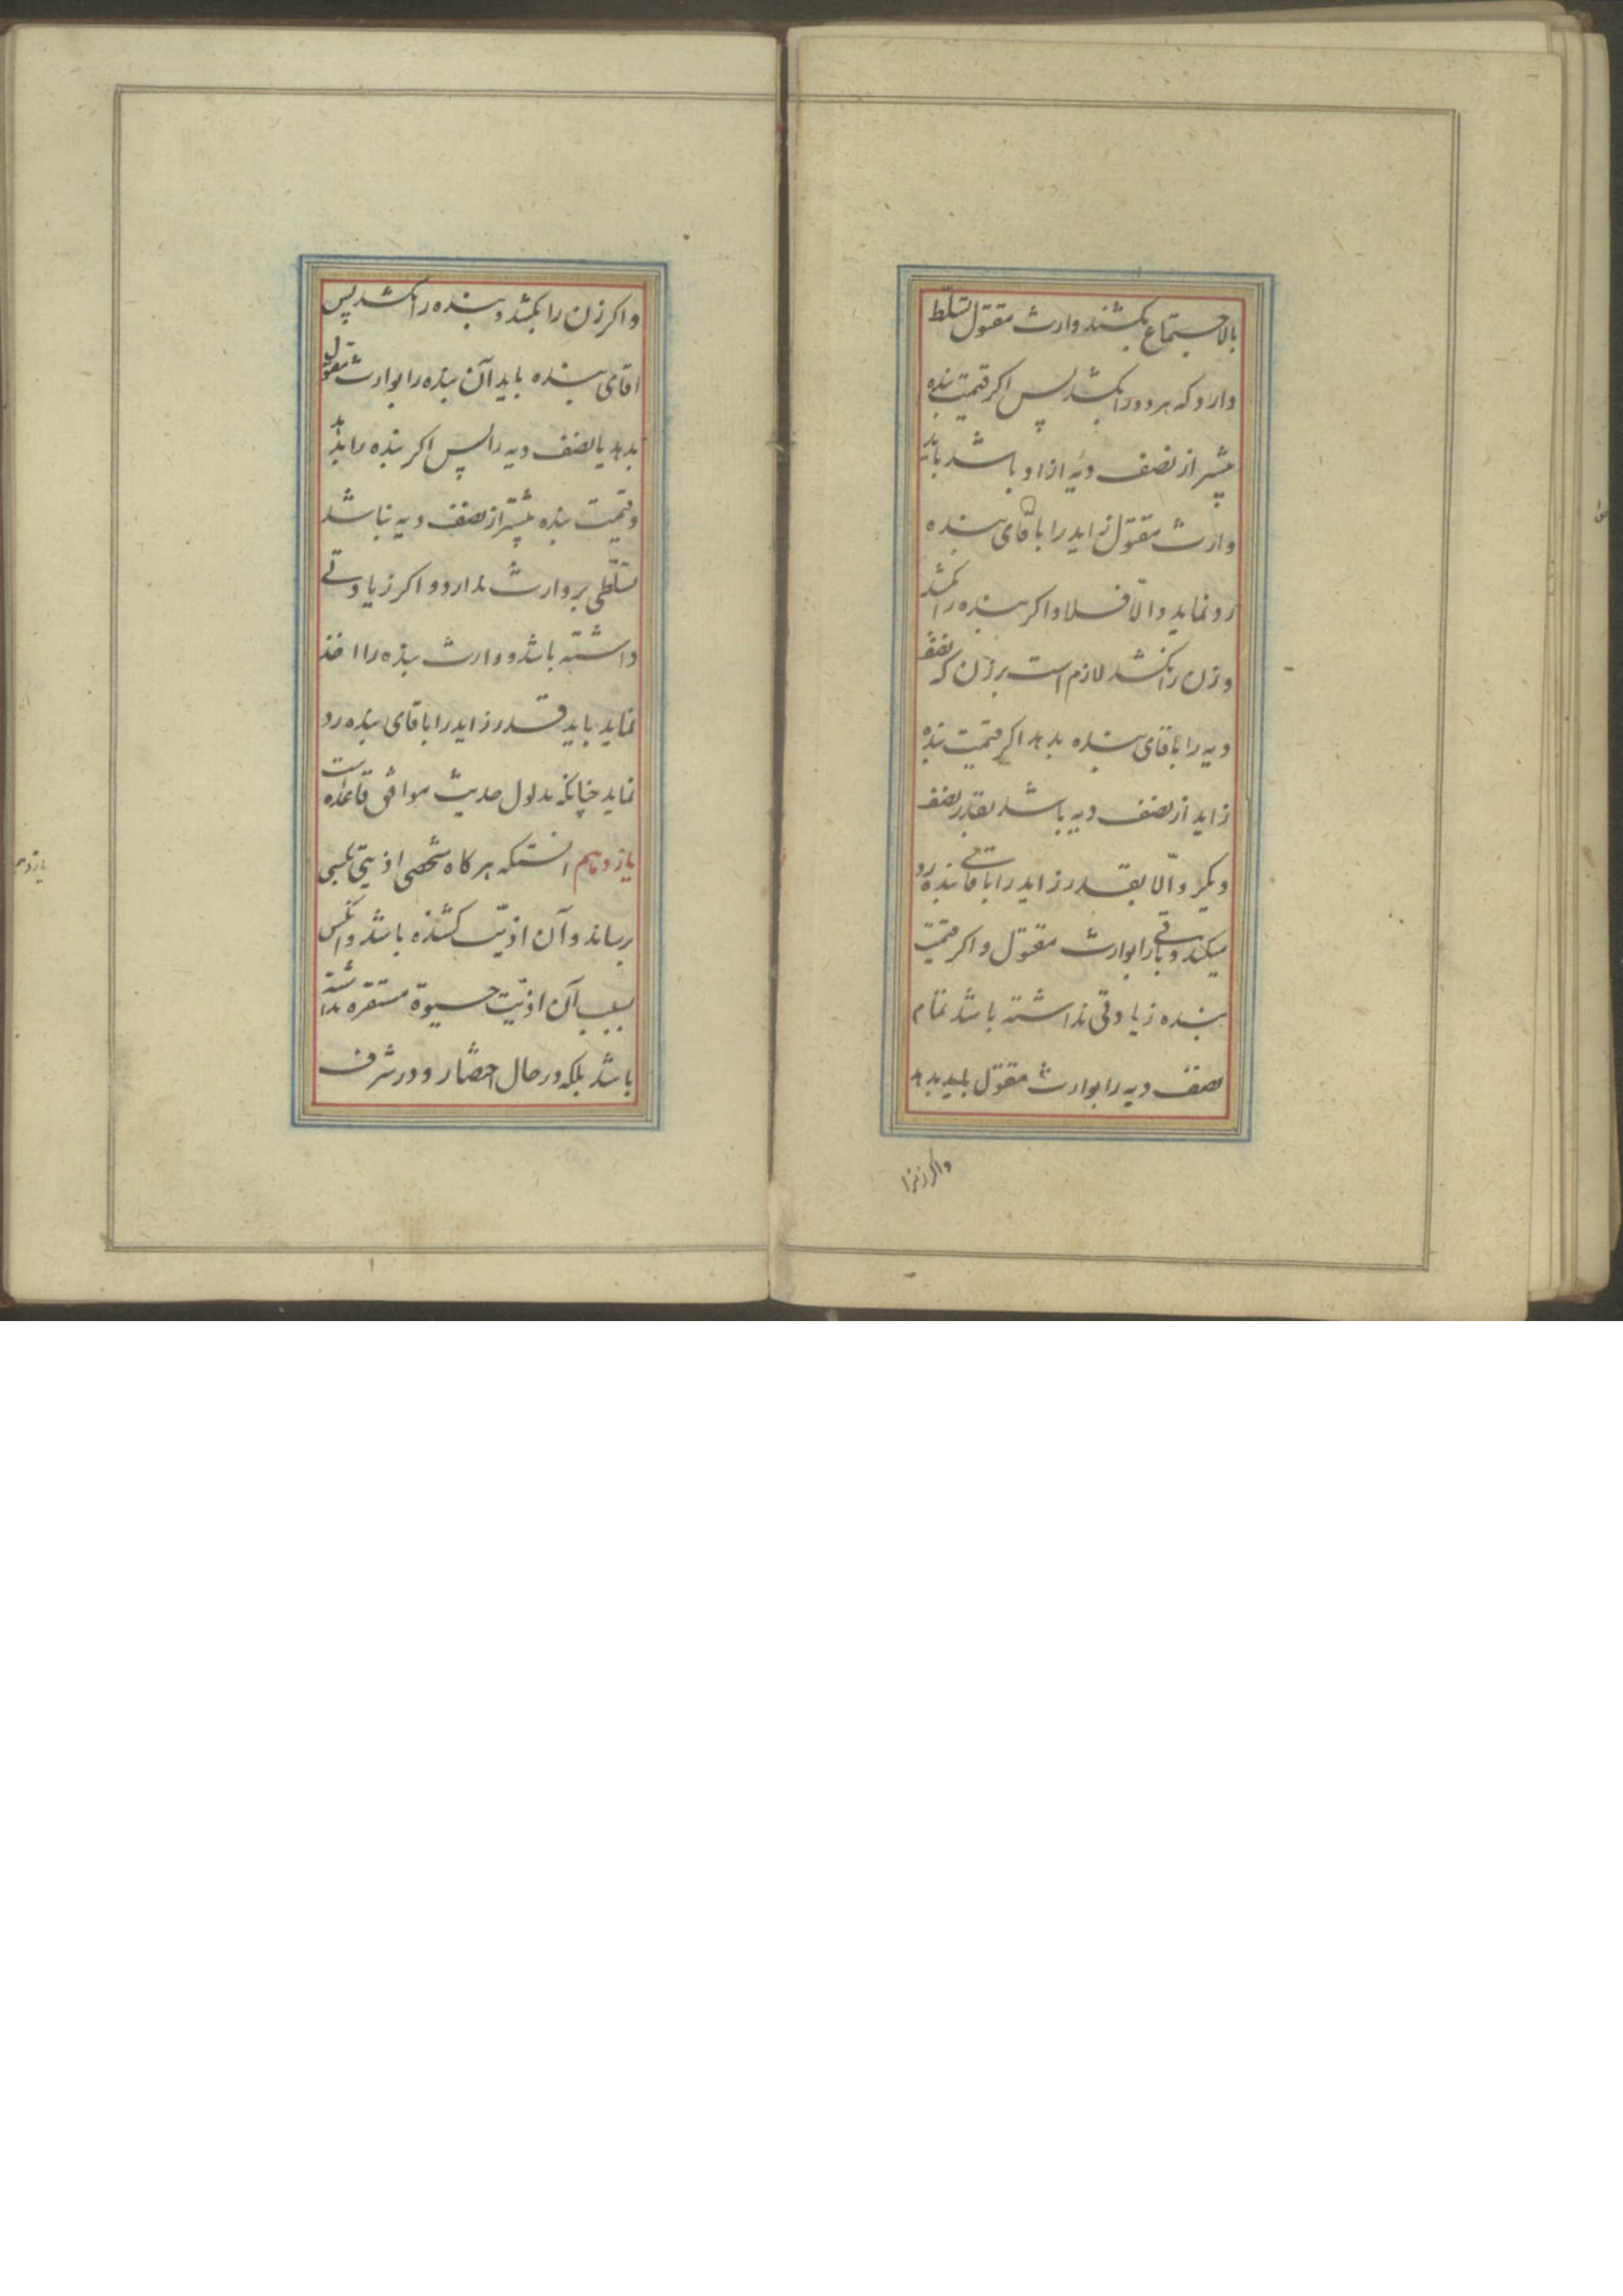 بالاجتماع بکشند وارث مقتول تسلّط
دارد که هر دو را بکشد پس اکر قیمت بنده
بیشتر از نصف دیهٔ ازاد باشد باید
وارث مقتول زاید را باقای بنده
رد نماید والّا فلا و اکر بنده را بکشد
و زن را نکشد لازم است بر زن که نصف
دیه را باقای بنده بدهد اکر قیمت بنده
زاید از نصف دیه باشد بقدر نصف
دیکر والّا بقدر زاید را باقای بنده رد
میکند و باقی را بوارث مقتول و اکر قیمت
بنده زیادتی نداشته باشد تمام
نصف دیه را بوارث مقتول باید بدهد
واکر زنرا
و اکر زن را بکشد و بنده را نکشد پس
اقای بنده باید آن بنده را بوارث مقتول
بدهد یا نصف دیه را پس اکر بنده را بدهد
و قیمت بنده بیشتر از نصف دیه نباشد
تسلّطی بر وارث ندارد و اکر زیادتی
داشته باشد و وارث بنده را اخذ
نماید باید قدر زاید را باقای بنده رد
نماید چنانکه مدلول حدیث موافق قاعده است
یازدهم انستکه هرکاه شخصی اذیتی بکسی
برساند و آن اذیّت کشنده باشد و انکس
بسبب آن اذیّت حیوة مستقره نداشته
باشد بلکه در حال احضار و در شرف
یازدهم